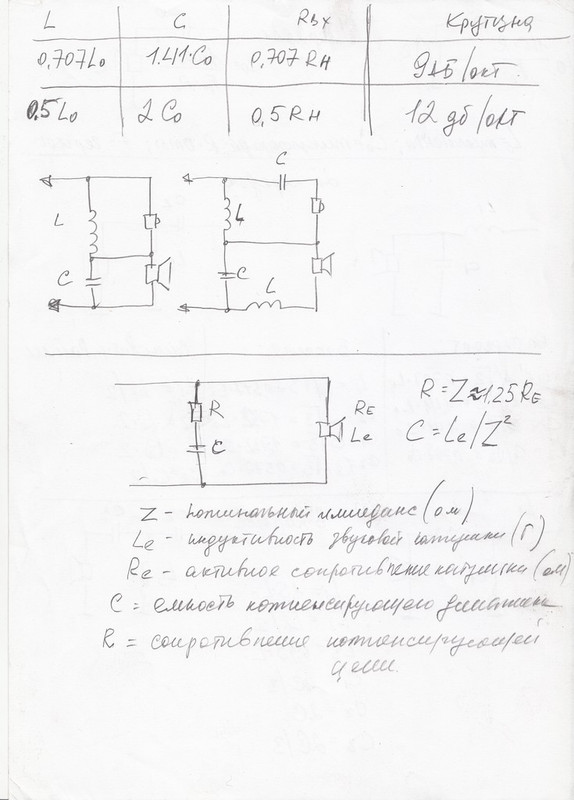 L C Rвх Крутизна
0,707L₀ 1.41·C₀ 0,707 Rн 9дБ/окт.
0,5L₀ 2C₀ 0,5Rн 12 дб/окт
C
L L
C C
L
R RE
C Le
R=Z≈1,25RE
C=Le/Z²
Z - номинальный импеданс (ом)
Le - индуктивность звуговой катушки (Г)
Re - активное сопротивление катушки (ом)
C = емкость
R = сопротивление
цепи.